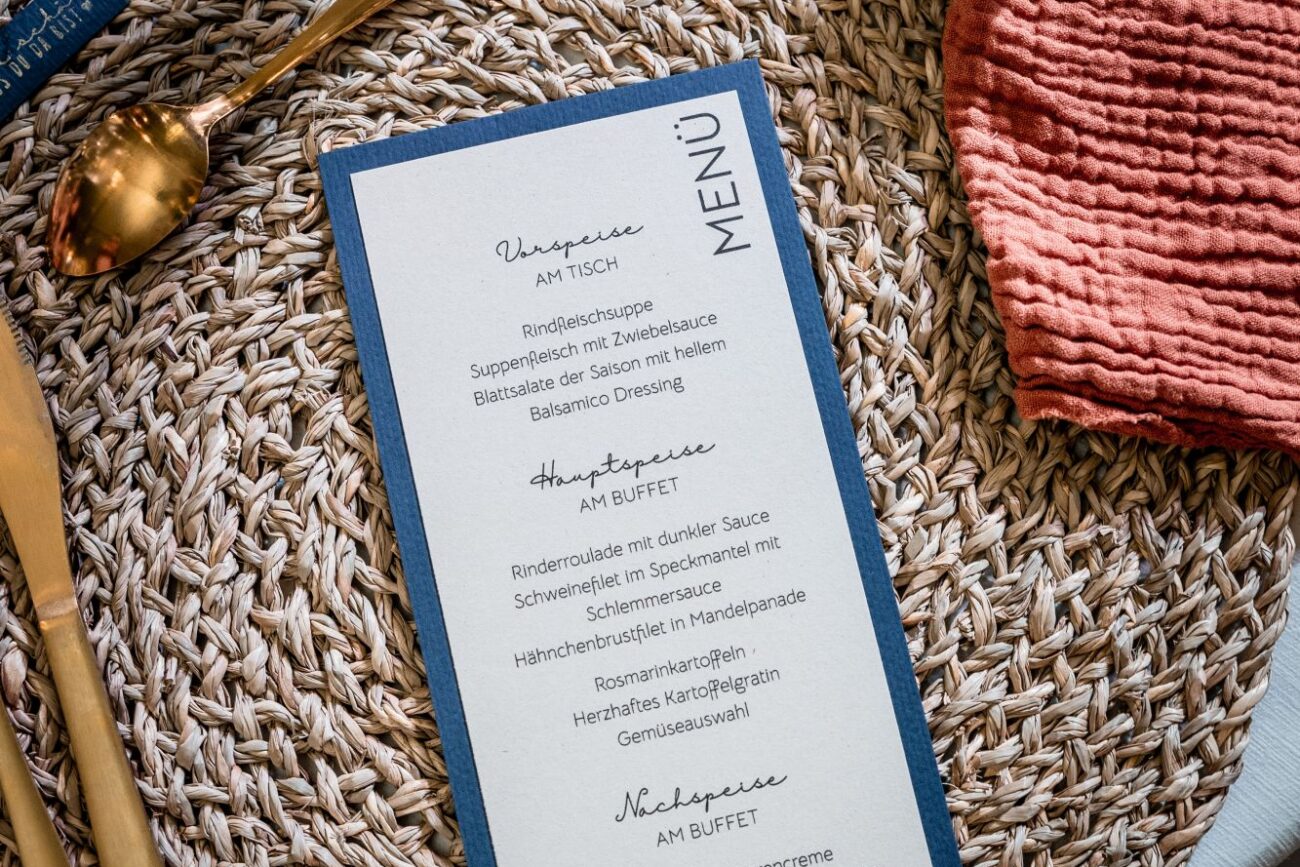 DU DA BIST
MENÜ
Vorspeise
AM TISCH
Rindfleischsuppe
Suppenfleisch mit Zwiebelsauce
Blattsalate der Saison mit hellem
Balsamico Dressing
Hauptspeise
AM BUFFET
Rinderroulade mit dunkler Sauce
Schweinefilet im Speckmantel mit
Schlemmersauce
Hähnchenbrustfilet in Mandelpanade
Rosmarinkartoffeln
Herzhaftes Kartoffelgratin
Gemüseauswahl
Nachspeise
AM BUFFET